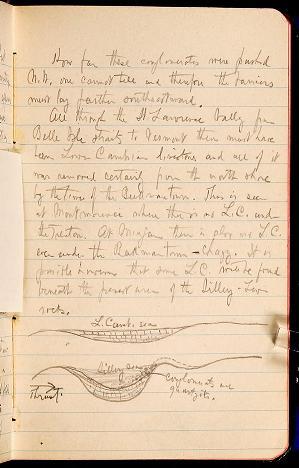 How far these conglomerates were pushed
N.W. one cannot tell and therefore the barriers
must lay farther southeastward.
All through the St Lawrence Valley from
Belle Isle straits to Vermont there must have
been Lower Cambrian and all of it
was removed certainly from the north shore
by the time of the Beekmantown. This is seen
at Montmorency where there is no L.C. under
the Trenton. At Mingan there is also no L.C.
even under the Beekmantown - Chazy. It is
possible however that some L.C. will be found
beneath the present area of the Sillery - Levis
rocks.
L. Camb. sea
Sillery sea
conglomerate and
quartzite.
Thrust.